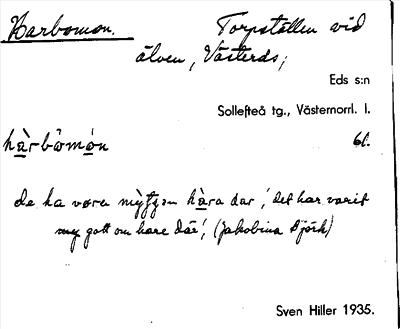 Harbomon. Torpställen vid
älven, Västerås;
Eds s:n
Sollefteå tg., Västernorrl. l.
hàrbömo̱n bl.
de ha vøra mỳtjen hàra dar', 'det har varit
my gott om hare där', (Jakobina Björk)
Sven Hiller 1935.